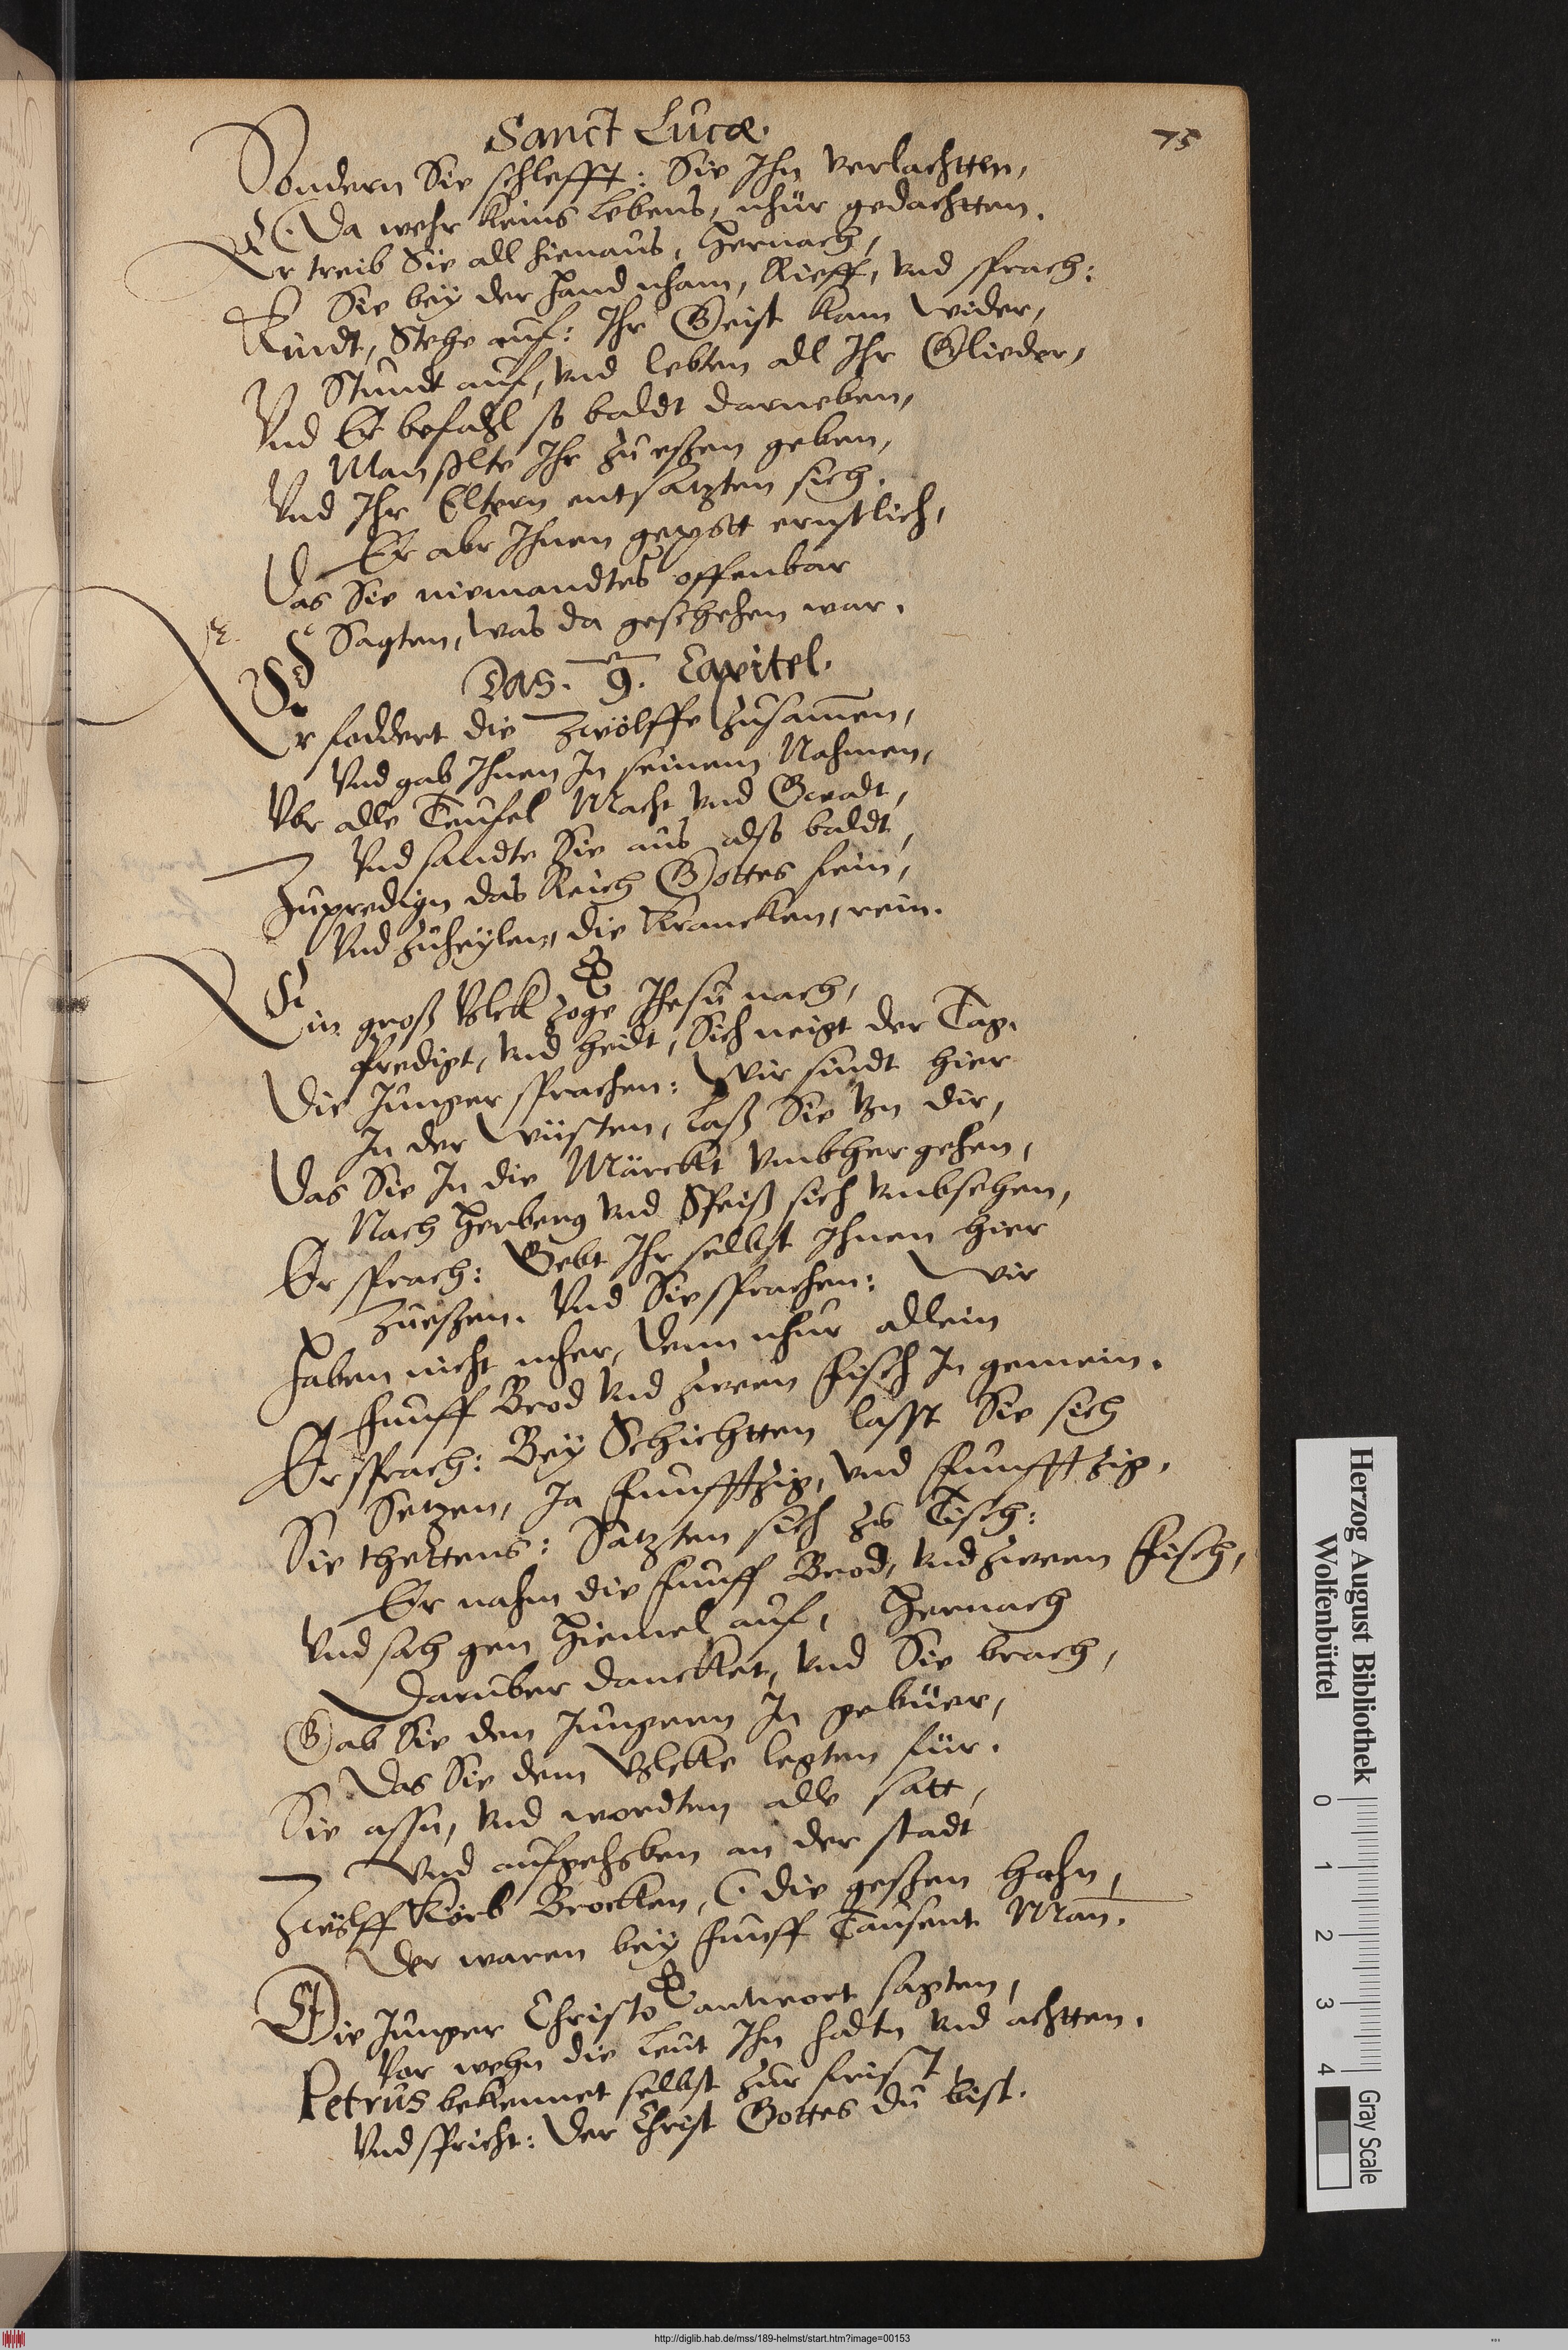 Sanct Lucæ.
75
Sondern Sie schlefft: Sie Ihn verlachtten,
Da wehr keins lebens, nhür gedachtten.
Er treib Sie all hienaus, Hernach,
Sie bey der Hand nham, Rieff, vnd sprach:
Kindt, Stehe auf: Ihr Geist kam wider,
Stundt auf, vnd lebten all Ihr Glieder,
Vnd Er befahl so baldt darneben,
Man solte Ihr zu eßen geben,
Vnd Ihr Eltern entsatzten sich.
Er abr Ihnen gepott ernstlich,
Das Sie niemandtes offenbar
Sagten, was da geschehen war.
Das. 9. Capitel.
Er foddert die Zwölffe zusamen,
Vnd gab Ihnen In seinem Nahmen,
Vbr alle Teufel Macht vnd Gwalt,
Vnd sandte Sie aus also baldt,
Zupredign das Reich Gottes fein,
Vnd zuheylen, die Krancken, rein.
Ein groß Volck zoge Jhesu nach,
Predigt, vnd heilt, Sich neigt der Tag.
Die Junger sprachen: Wir sindt hier
In der Wüsten, laß Sie von dir,
Das Sie In die Märckt vmbher gehen,
Nach Herberg vnd Speiß sich vmbsehen,
Er sprach: Gebt Ihr selbst Ihnen hier
Zueßen. Vnd Sie sprachen: Wir
Haben nicht mher, denn nhur allein
Funff Brod vnd zween Fisch In gemein.
Er sprach: Bey Schichtten lasst Sie sich
Setzen, Ja Funfftzig, vnd Funfftzig.
Sie thettens: Satzten sich zo Tisch:
Er nahm die Funff Brod, vnd zween Fisch,
Vnd sah gen Hiemel auf, Hernach
Daruber dancket, vnd Sie brach,
Gab Sie den Jungern In gebüer,
Das Sie dem Volcke legten für.
Sie assn, vnd wordten alle satt,
Vnd aufgehoben an der stadt
Zwölff Körb Brocken, die geßen hahn,
Der waren bey Funff Tausent Man.
Die Junger Christo antwort sagten,
Vor wehn die Leut Ihn hadtn vnd achtten.
Petrus bekennet selbst zur frist,
Vnd spricht: Der Christ Gottes du bist.
Herzog August Bibliothek
Wolfenbüttel
0 1 2 3 4
Gray Scale
http://diglib.hab.de/mss/189-helmst/start.htm?image=00153